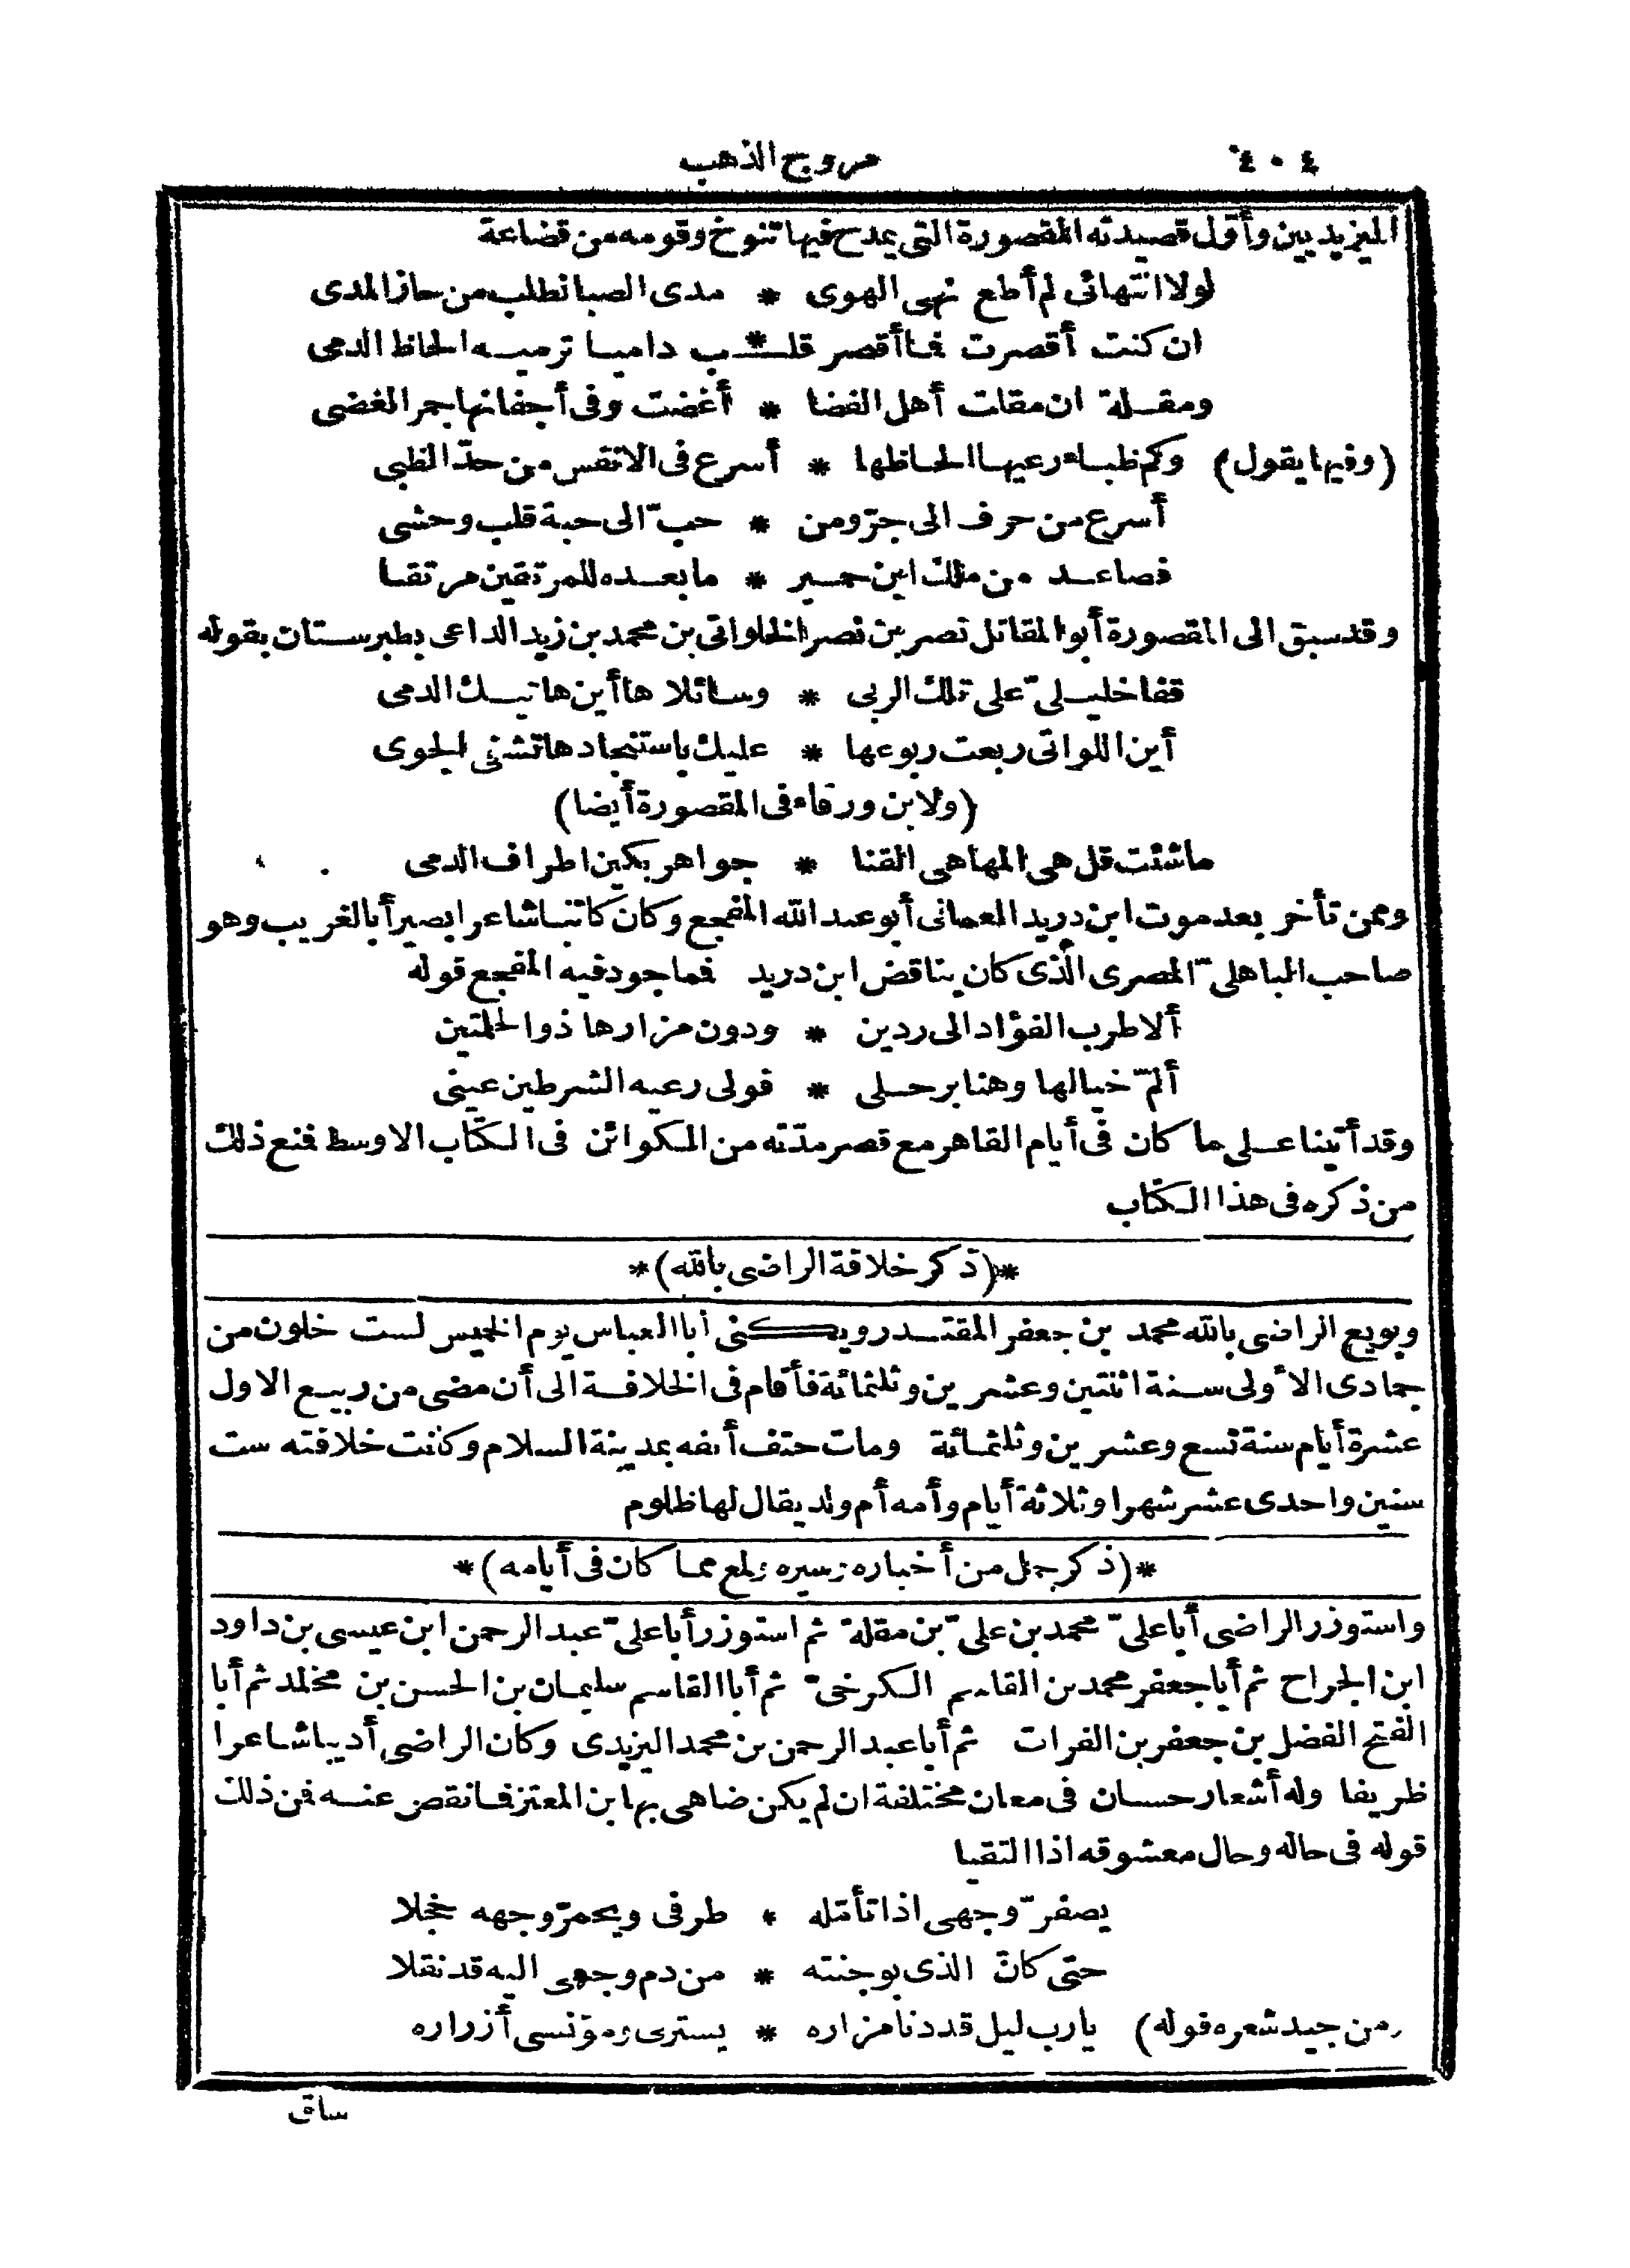 ٤٠٤ مروج الذهب
اليزيديين وأوّل قصيدته المقصورة التى يمدح فيها تنوخ وقومه من قضاعة
لولا انتهائى لم أطع نهى الهوى * مدى الصبا نطلب من حاز المدى
ان كنت أقصرت فما أقصر قلـب * داميا ترميه الحاظ الدمى
ومقلة ان مقلت أهل الفضا * أغضت وفى أجفانها جمر الغضى
(وفيها يقول) وكم ظباء رعيها الحاظها * أسرع فى الانفس من حدّ الظبى
أسرع من حرف الى جرّ ومن * حبّ الى حبة قلب وحشى
فصاعد من ملك ابن حمير * ما بعده للمرتقين مرتقا
وقد سبق الى المقصورة أبو المقاتل نصر بن نصر الحلوانى بن محمد بن زيد الداعى بطبرستان بقوله
قفا خليلىّ على تلك الربى * وسائلا ها أين هاتيك الدمى
أين اللواتى ربعت ربوعها * عليك باستنجادها تشفى الجوى
(ولابن ورقاء فى المقصورة أيضا)
ما شئت قل هى المها هى القنا * جواهر بكين اطراف الدمى
وممن تأخر بعد موت ابن دريد العمانى أبو عبد الله المفجع وكان كاتبا شاعرا بصيرا بالغريب وهو
صاحب الباهلىّ المصرى الذى كان يناقض ابن دريد فما جود فيه المفجع قوله
ألا طرب الفؤاد الى ردين * ودون مزارها ذوا لحلمتين
ألمّ خيالها وهنا برحلى * فولى رعيه الشرطين عينى
وقد أتينا على ما كان فى أيام القاهر مع قصر مدّته من الكوائن فى الكتاب الاوسط فنع ذلك
من ذكره فى هذا الكتاب
*(ذكر خلافة الراضى بالله)*
وبويع الراضى بالله محمد بن جعفر المقتدر ويكنى أبا العباس يوم الخميس لست خلون من
جمادى الأولى سنة اثنتين وعشرين وثلثمائة فأقام فى الخلافة الى أن مضى من ربيع الاول
عشرة أيام سنة تسع وعشرين وثلثمائة ومات حتف أنفه بمدينة السلام وكانت خلافته ست
سنين واحدى عشر شهرا وثلاثة أيام وأمه أم ولد يقال لها ظلوم
*(ذكر جمل من أخباره وسيره ولمع مما كان فى أيامه)*
واستوزر الراضى أبا علىّ محمد بن علىّ بن مقلة ثم استوزر أبا علىّ عبد الرحمن ابن عيسى بن داود
ابن الجراح ثم أبا جعفر محمد بن القاسم الكرخىّ ثم أبا القاسم سليمان بن الحسن بن مخلد ثم أبا
الفتح الفضل بن جعفر بن الفرات ثم أبا عبد الرحمن بن محمد اليزيدى وكان الراضى أديبا شاعرا
ظريفا وله أشعار حسان فى معان مختلفة ان لم يكن ضاهى بها ابن المعتز فما نقص عنه فن ذلك
قوله فى حاله وحال معشوقه اذا التقيا
يصفرّ وجهى اذا تأمّله * طرفى ويحمرّ وجهه خجلا
حتى كانّ الذى بوجنته * من دم وجهى اليه قد نقلا
ومن جيد شعره قوله) يارب ليل قد دنا مزاره * يسترى ومؤنسى أزراره
ساق